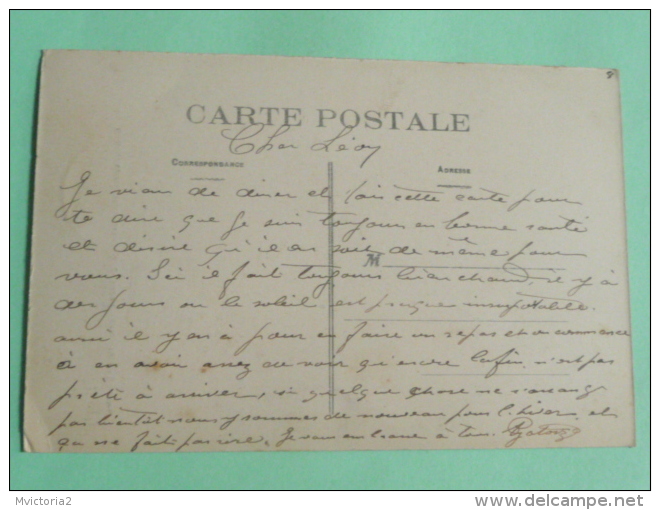 CARTE POSTALE
Cher Léon
CORRESPONDANCE
ADRESSE
Je viens de diner et fais cette carte pour
te dire que je suis toujours en bonne santé
et désire qu'il en soit de même pour
vous. Ici il fait toujours bien chaud, il y à
des jours ou le soleil est presque insuportable.
aussi il y en à pour en faire un repas et on commence
à en avoir assez de voir qu'encore la fin n'est pas
prête à arriver, si quelque chose ne s'arrange
pas bientôt nous y sommes de nouveau pour l'hiver, et
qui ne fait pas rire. Je vous embrasse à tous.
Mvictoria2
www.delcampe.net